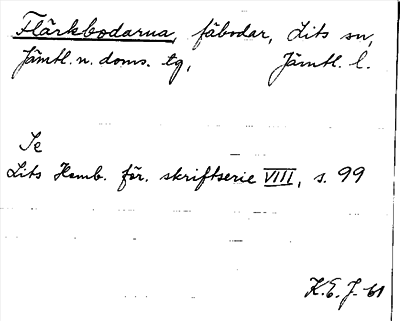 Flärkbodarna, fäbodar, Lits sn,
Jämtl. n. doms. tg, Jämtl. l.
Se
Lits Hemb. för. skriftserie VIII, s. 99
K.E.J-61